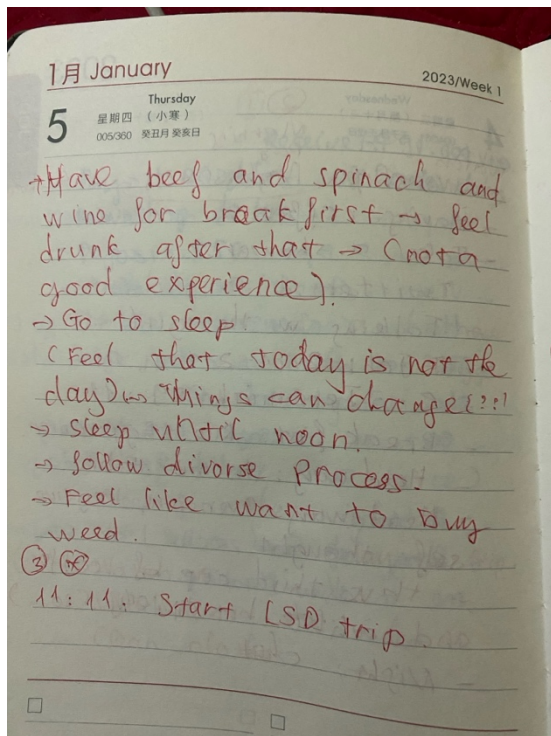 1月 January
2023/Week 1
5
Thursday
星期四 （小寒）
005/360 癸丑月 癸亥日
→Have beef and spinach and
wine for breakfirst → feel
drunk after that → (not a
good experience).
→ Go to sleep
(Feel that today is not the
day) Things can change(??!
→ sleep until noon.
→ follow divorse process.
→ Feel like want to buy
weed.
③
11:11: Start LSD trip.